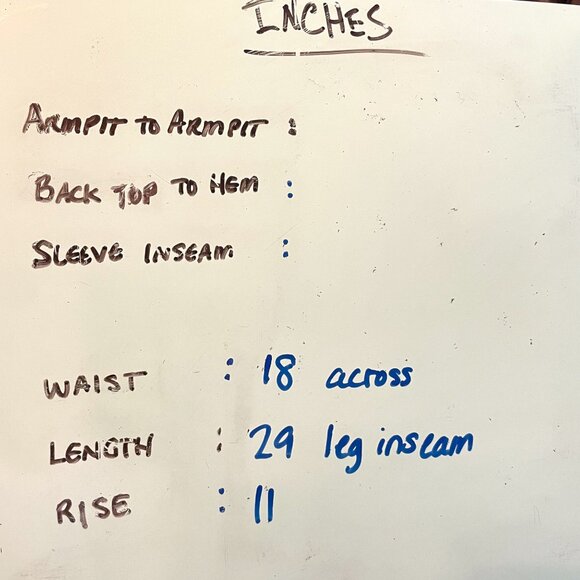 INCHES
ARMPIT TO ARMPIT :
BACK TOP TO HEM :
SLEEVE INSEAM :
WAIST : 18 across
LENGTH : 29 leg inseam
RISE : 11